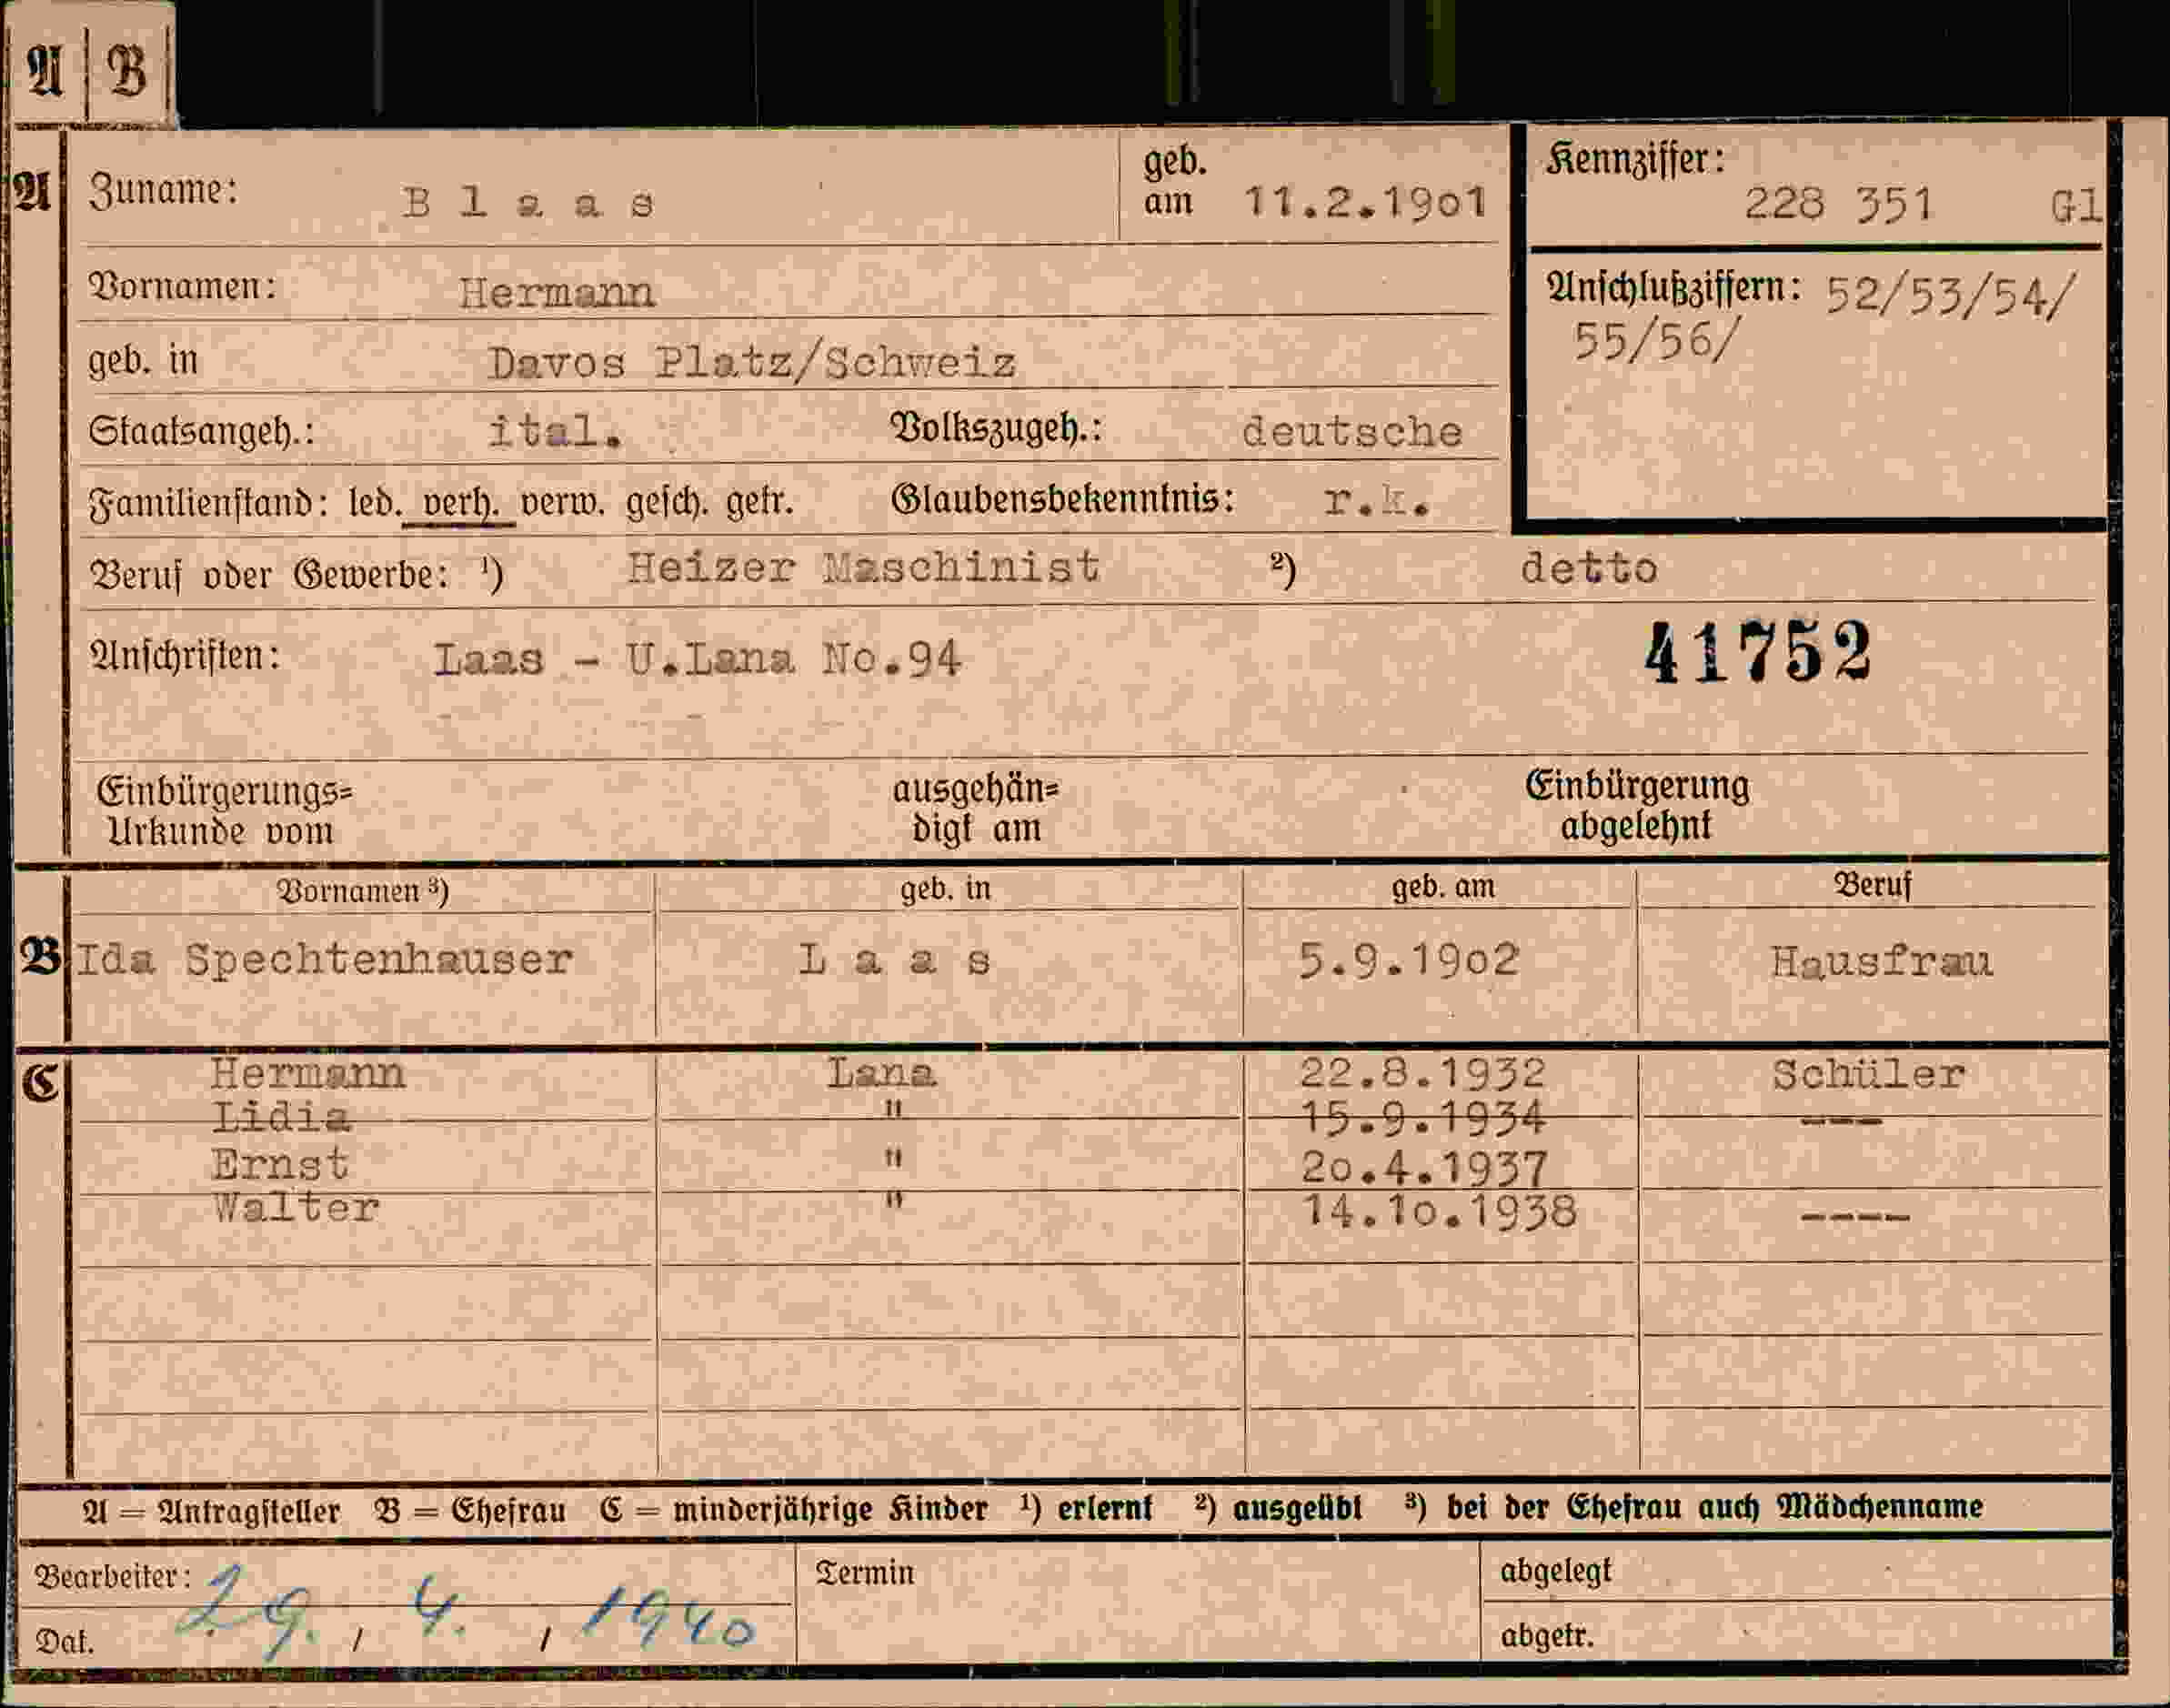 A B
A Zuname: B l a a s geb. am 11.2.1901 Kennziffer: 228 351 Gl
Vornamen: Hermann Anschlußziffern: 52/53/54/
55/56/
geb. in Davos Platz/Schweiz
Staatsangeh.: ital. Volkszugeh.: deutsche
Familienstand: led. verh. verw. gesch. getr. Glaubensbekenntnis: r.k.
Beruf oder Gewerbe: ¹) Heizer Maschinist ²) detto
Anschriften: Laas - U.Lana No.94 41752
Einbürgerungs= Urkunde vom ausgehän= digt am Einbürgerung abgelehnt
Vornamen ³) geb. in geb. am Beruf
B Ida Spechtenhauser L a a s 5.9.1902 Hausfrau
C Hermann Lana 22.8.1932 Schüler
Lidia " 15.9.1934 ---
Ernst " 20.4.1937
Walter " 14.10.1938 ----
A = Antragsteller B = Ehefrau C = minderjährige Kinder ¹) erlernt ²) ausgeübt ³) bei der Ehefrau auch Mädchenname
Bearbeiter: Termin abgelegt
Dat. 29. / 4. / 1940 abgetr.